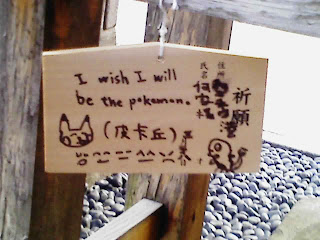 I wish I will
be the pokemon.
(皮卡丘)
祈願
住所
香港
氏名